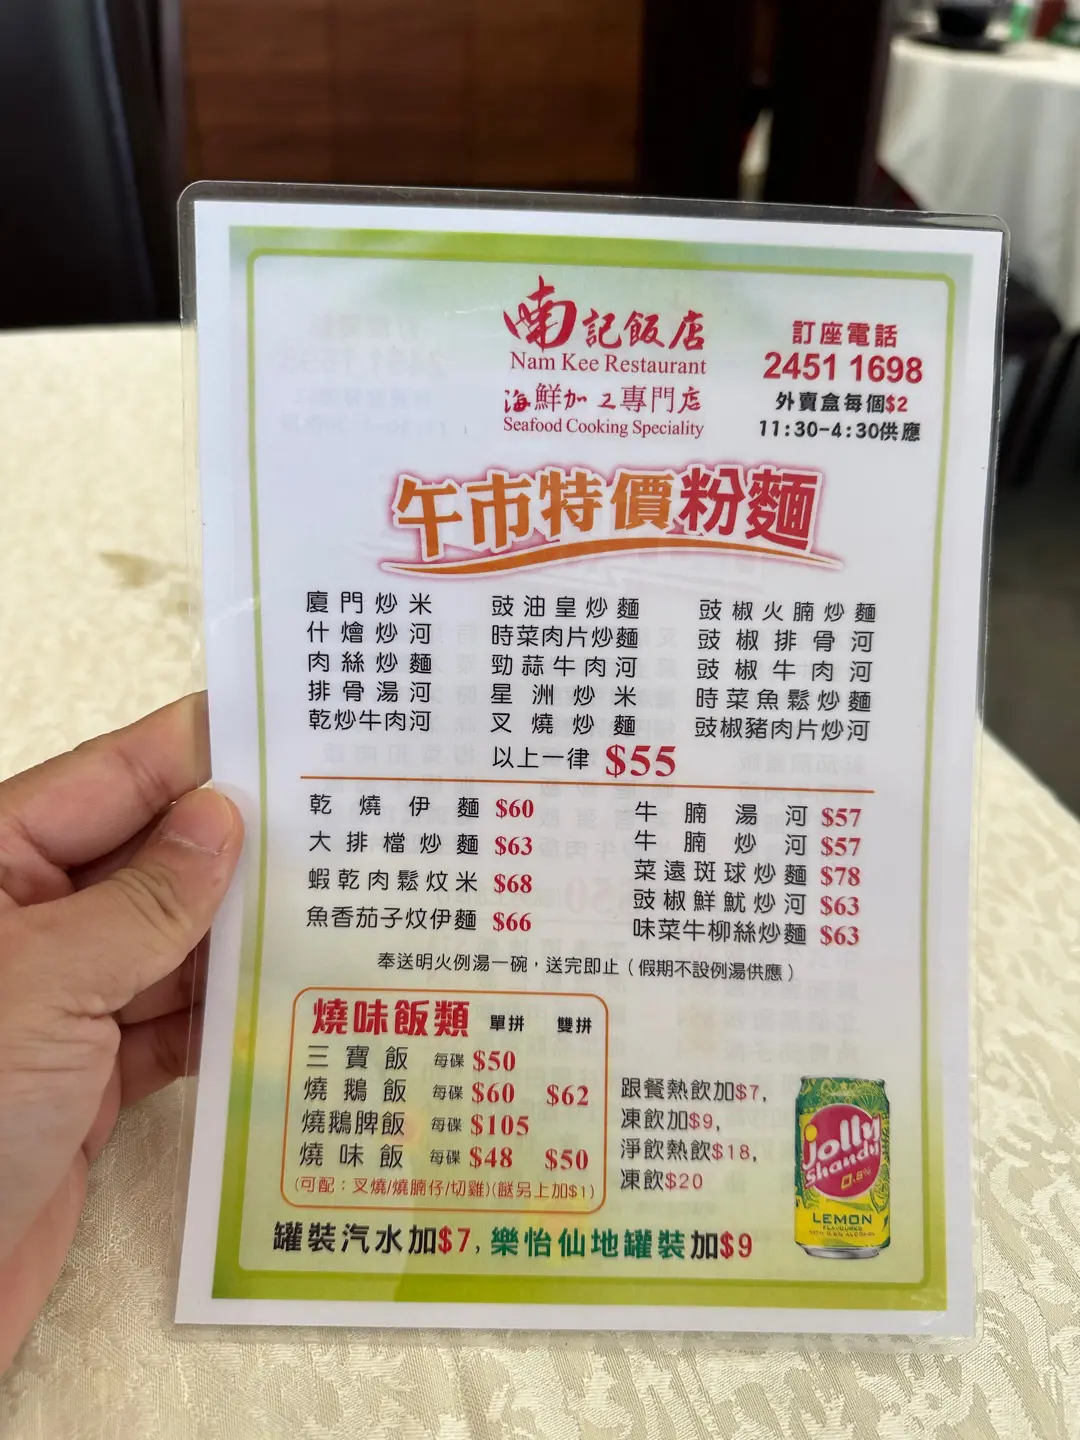 南記飯店
Nam Kee Restaurant
海鮮加工專門店
Seafood Cooking Speciality
訂座電話
2451 1698
外賣盒每個$2
11:30-4:30供應
午市特價粉麵
廈門炒米 豉油皇炒麵 豉椒火腩炒麵
什燴炒河 時菜肉片炒麵 豉椒排骨河
肉絲炒麵 勁蒜牛肉河 豉椒牛肉河
排骨湯河 星洲炒米 時菜魚鬆炒麵
乾炒牛肉河 叉燒炒麵 豉椒豬肉片炒河
以上一律 $55
乾燒伊麵 $60 牛腩湯河 $57
大排檔炒麵 $63 牛腩炒河 $57
蝦乾肉鬆炆米 $68 菜遠斑球炒麵 $78
魚香茄子炆伊麵 $66 豉椒鮮魷炒河 $63
味菜牛柳絲炒麵 $63
奉送明火例湯一碗，送完即止（假期不設例湯供應）
燒味飯類 單拼 雙拼
三寶飯 每碟 $50
燒鵝飯 每碟 $60 $62
燒鵝脾飯 每碟 $105
燒味飯 每碟 $48 $50
(可配：叉燒/燒腩仔/切雞)(餸另上加$1)
跟餐熱飲加$7,
凍飲加$9,
淨飲熱飲$18,
凍飲$20
jolly
Shandy
0.5%
LEMON
FLAVOURED
罐裝汽水加$7, 樂怡仙地罐裝加$9